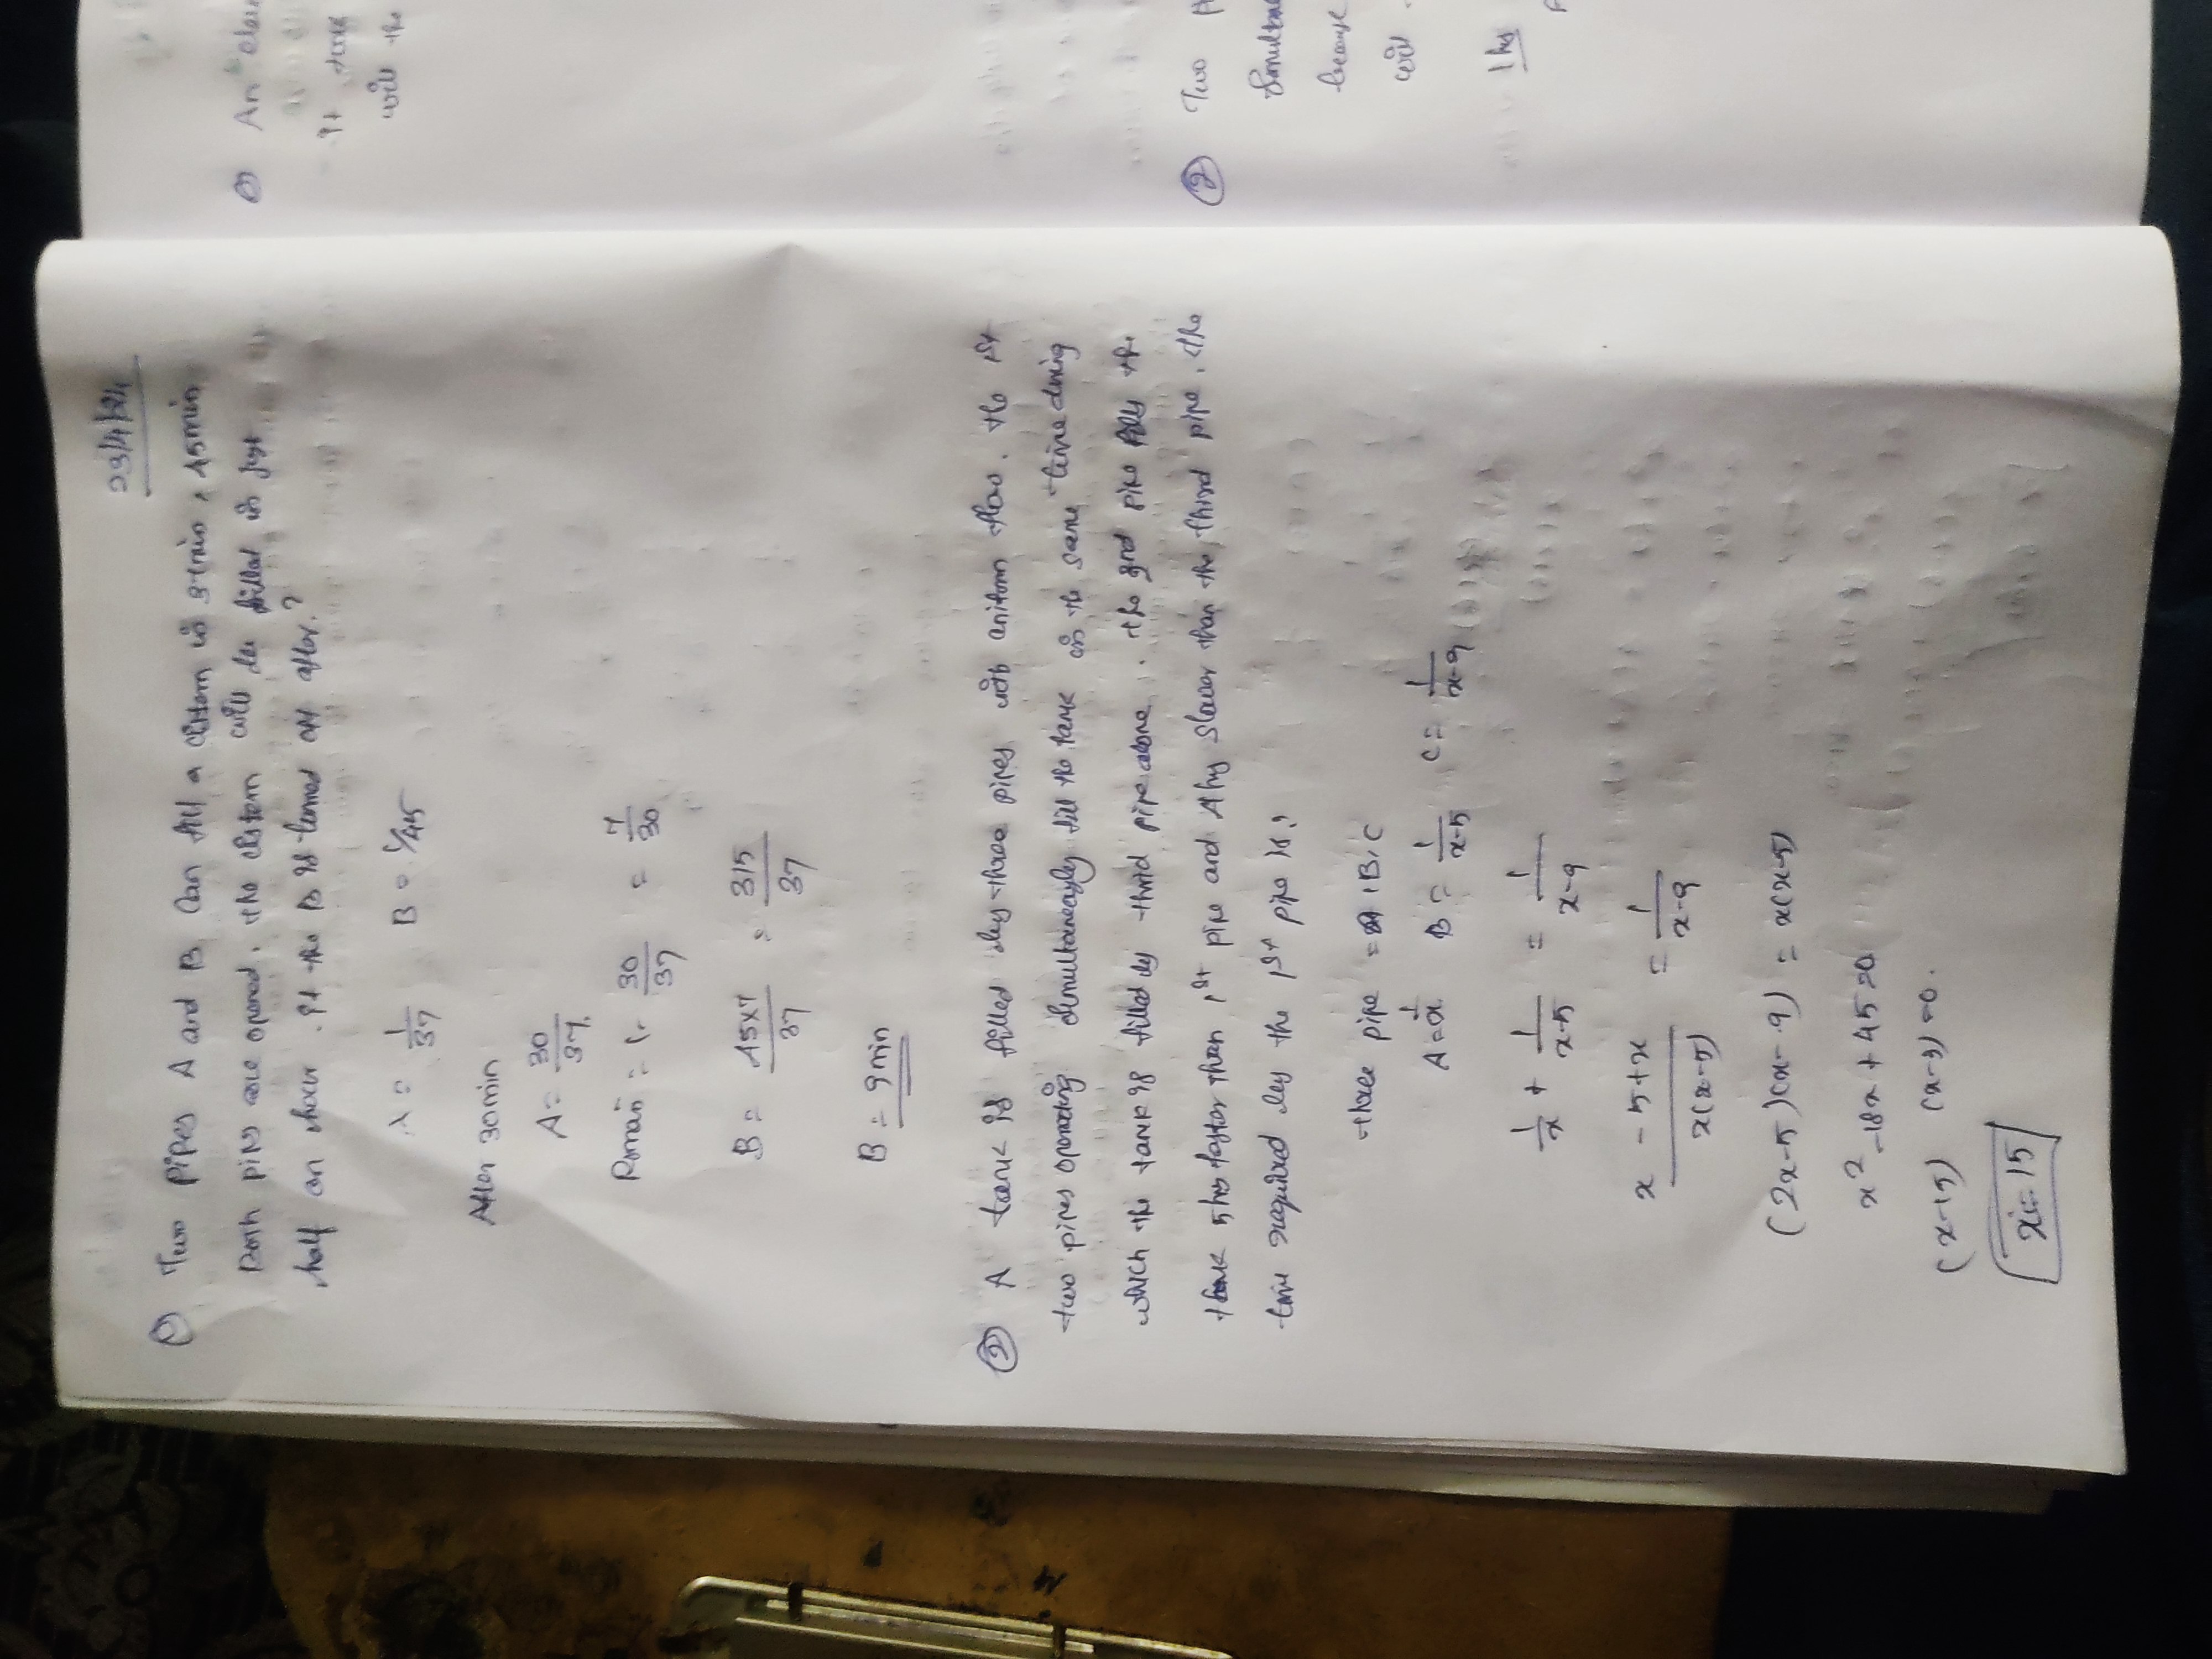 23/4/24
① Two pipes A and B can fill a cistern in 37min, 45min
Both pips are opened. the cistern will be filled in just
half an hour. if the B is turned off after.?
A = 1/37 B = 1/45
After 30min
A = 30/37.
Remain = 1- 30/37 = 7/30
B = 45x7/37 = 315/37
B = 9min
② A tank is filled by three pipes with uniform flow. the 1st
two pipes operating simultaneously fill the tank in the same time during
which the tank is filled by third pipe alone. the 2nd pipe fills the
tank 5hrs faster than 1st pipe and 4hrs slower than the third pipe. the
time required by the 1st pipe is?
three pipe = A, B, C
A = 1/x B = 1/x-5 C = 1/x-9
1/x + 1/x-5 = 1/x-9
x - 5+x/x(x-5) = 1/x-9
(2x-5)(x-9) = x(x-5)
x² -18x + 45 = 0
(x-15) (x-3) = 0.
x = 15
① An
it took
will the
② Two
Simultane
because
will
1 hrs